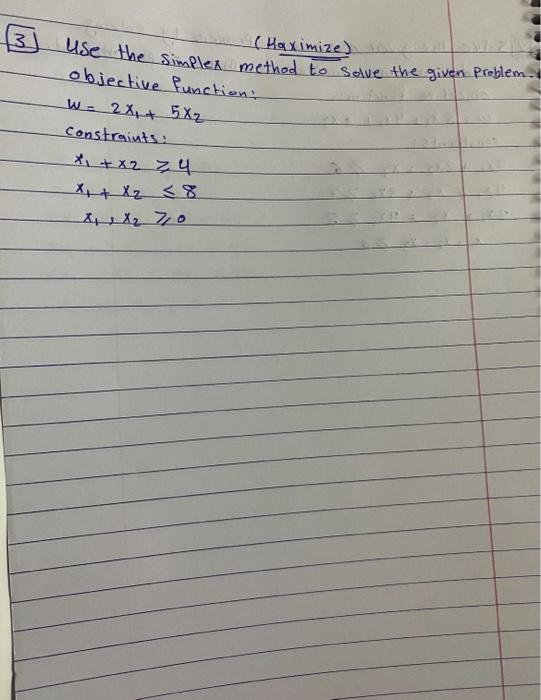 (Maximize)
3 Use the simplex method to solve the given problem.
objective function:
W = 2x₁ + 5x₂
constraints:
x₁ + x2 ≥ 4
x₁ + x₂ ≤ 8
x₁, x₂ ≥ 0